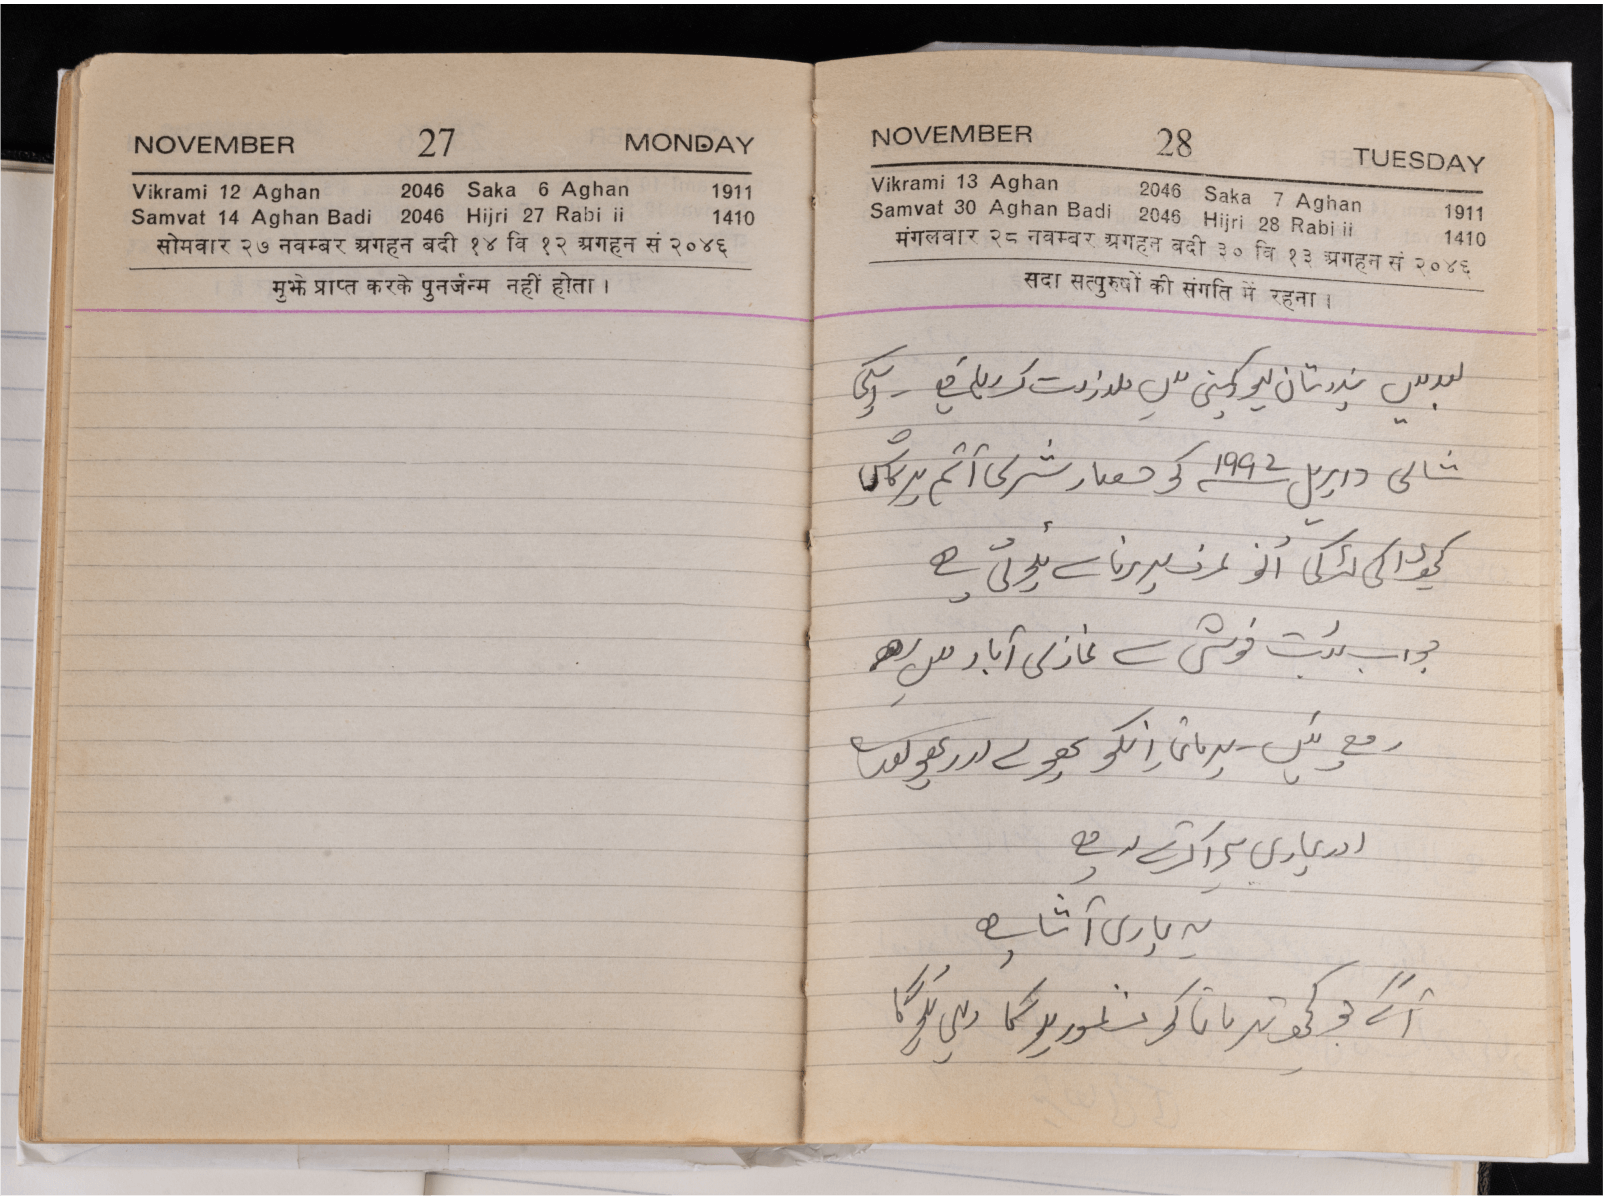 NOVEMBER 27 MONDAY
Vikrami 12 Aghan 2046 Saka 6 Aghan 1911
Samvat 14 Aghan Badi 2046 Hijri 27 Rabi ii 1410
सोमवार २७ नवम्बर अगहन बदी १४ वि १२ अगहन सं २०४६
मुझे प्राप्त करके पुनर्जन्म नहीं होता ।
NOVEMBER 28 TUESDAY
Vikrami 13 Aghan 2046 Saka 7 Aghan 1911
Samvat 30 Aghan Badi 2046 Hijri 28 Rabi ii 1410
मंगलवार २८ नवम्बर अगहन बदी ३० वि १३ अगहन सं २०४६
सदा सत्पुरुषों की संगति में रहना ।
بعد میں ہندوستان لیور کمپنی میں ملازمت کر رہا ہے ۔ اسکی
شادی اپریل 1992 کو شری آتم پرکاش
کی لڑکی عرف سے ہوئی ہے
جو اب بہت خوشی سے غازی آباد میں رہ
رہے ہیں ۔ پرماتما انکو پھولے اور
اور ہماری کرتے رہے
یہ ہماری آشا ہے
آگے جو کچھ پرماتما کو منظور ہو گا وہی ہو گا